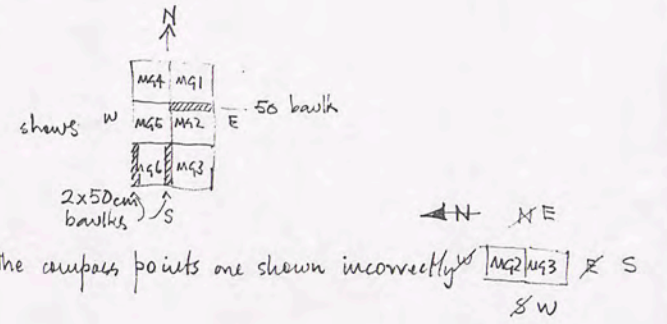 N
MG4 MG1
50 baulk
shows W MG5 MG2 E
MG6 MG3
2x50cm
baulks S
N N E
The compass points are shown incorrectly W MG2 MG3 E S
S W